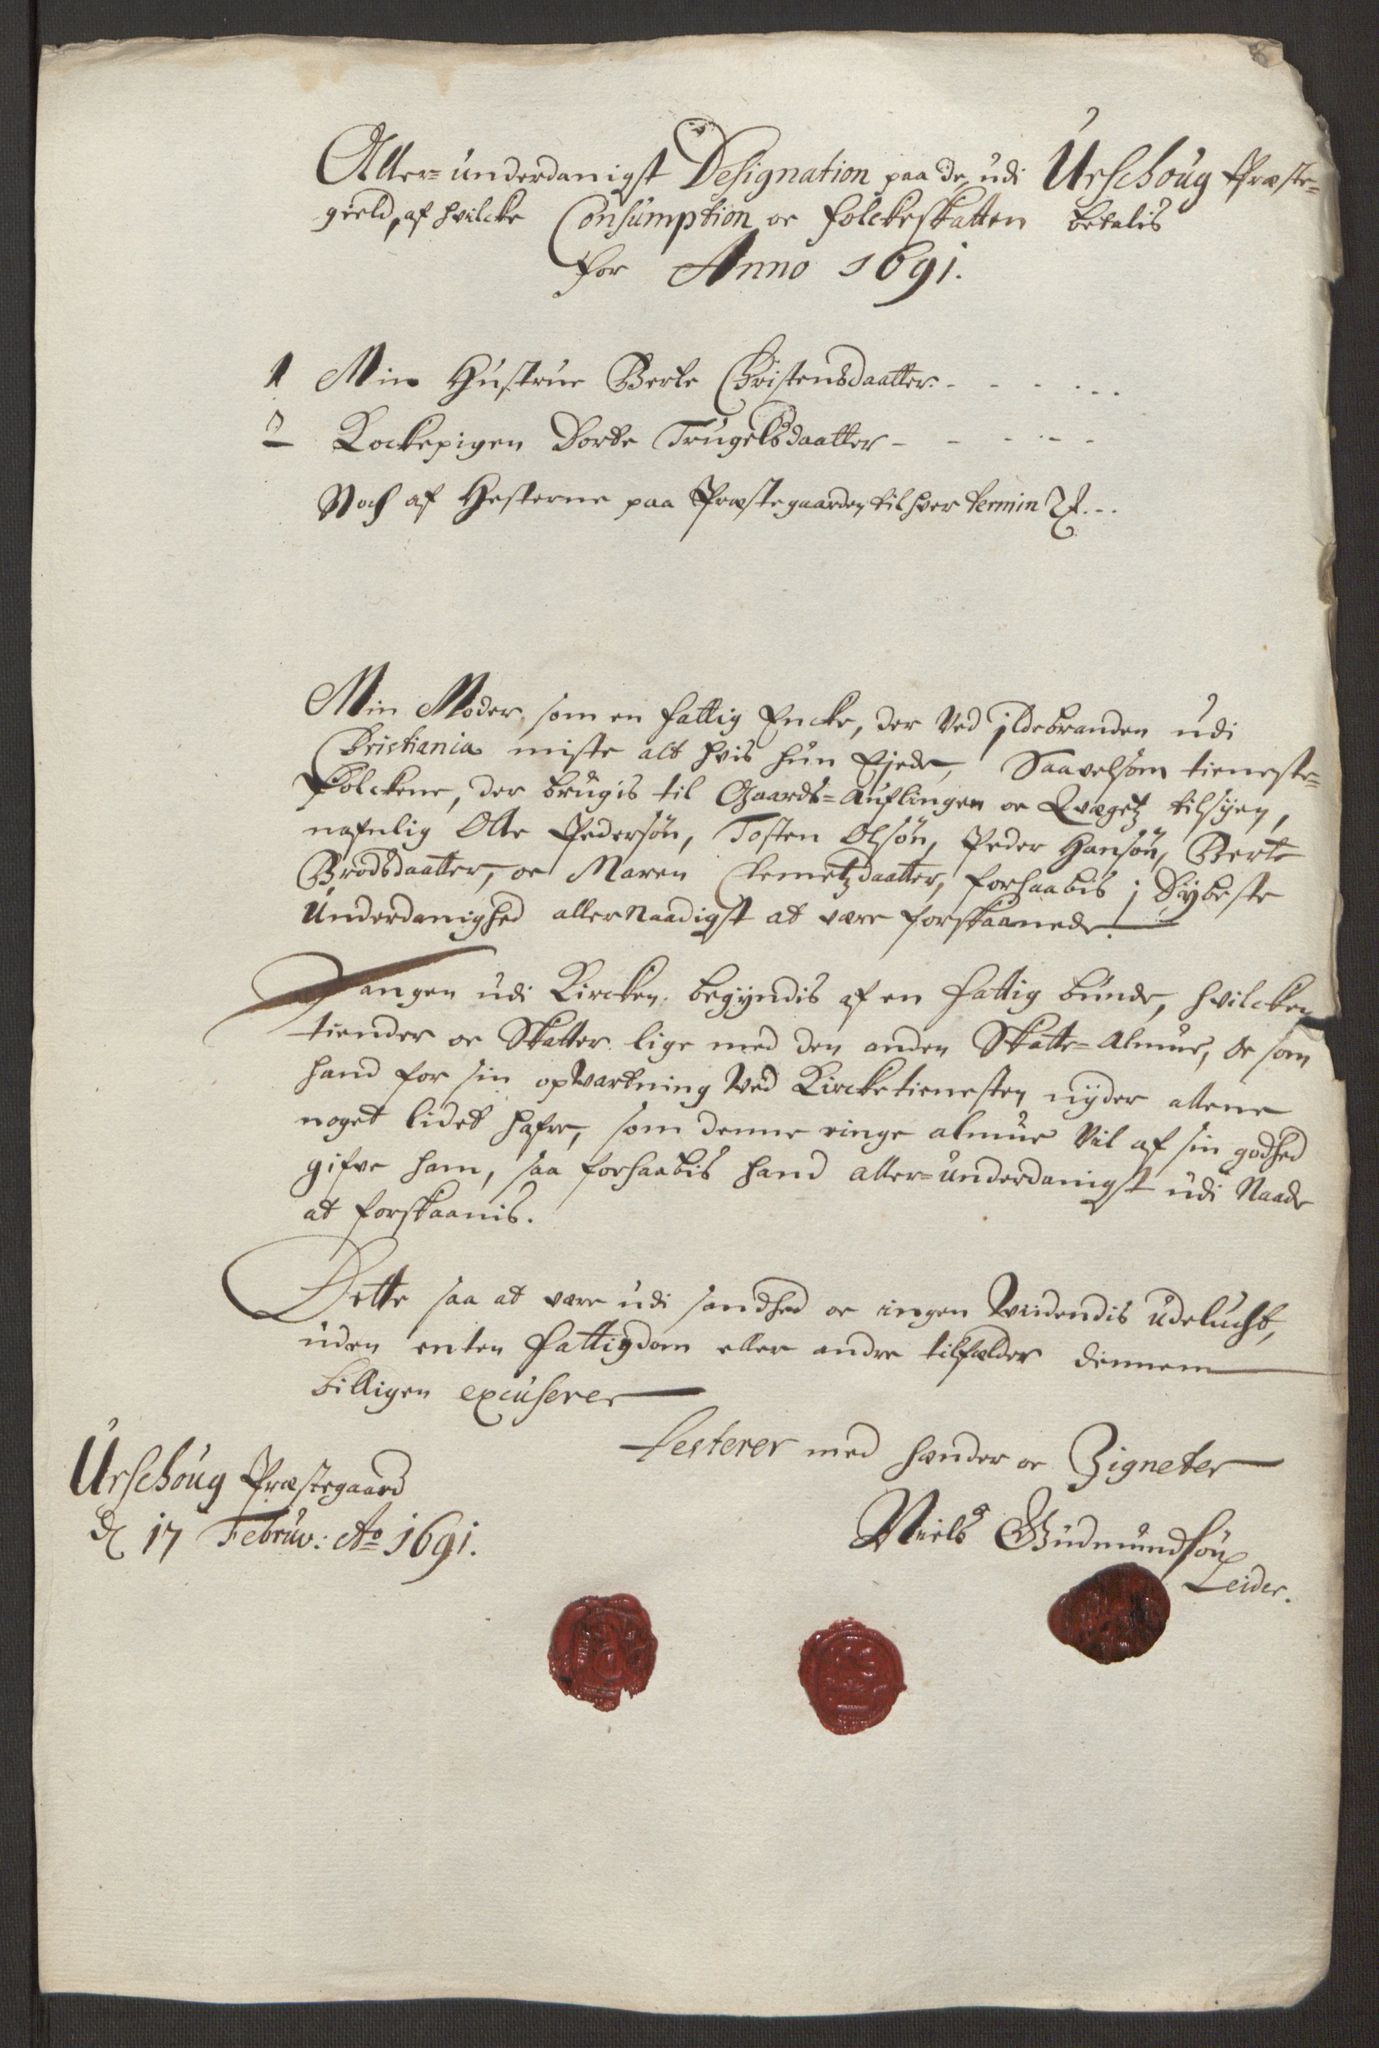 Aller-underdanigst Designation paa de, udi Urschoug Præste-
gield, af hvilcke Consumption oc folckeskatten betalis
for Anno 1691.
1 Min Hustrue Berte Christensdaatter
2 Kockepigen Dorte Trugelsdaatter
Noch af Hesterne paa Præstegaarden til hver termin 2
Min Moder, som en fattig Encke, der Ved jldebranden udi
Christiania miste alt hvis hun Ejede, Saavelsom tieneste-
folckene, der brugis til Gaards-auflingen oc Qvægetz tilsyen,
nafnlig Olle Pedersøn, Tosten Olsøn, Peder Hansøn, Berte
Brodsdaatter, oc Maren Clemetzdaatter, forhaabis j Dybeste
Underdanighed allernaadigst at være forskaanede.
Sangen udi Kircken begyndis af en fattig bunde, hvilcken
tiender oc Skatter lige med den anden Skatte-almue, Oc som
hand for sin opvartning Ved Kircketienesten nyder allene
noget lidet hafre, som denne ringe almue Vil af sin godhed
gifve ham, saa forhaabis hand aller-underdanigst udi Naade
at forskaanis.
Dette saa at være udi sandhed oc ingen Viidendis udelucht,
uden enten fattigdom eller andre tilfælder dennem
billigen excuserer
testerer med hænder oc Zigneter
Urschoug Præstegaard
d 17 Februv: Ao 1691.
Niels Gudmundsøn
Leider.